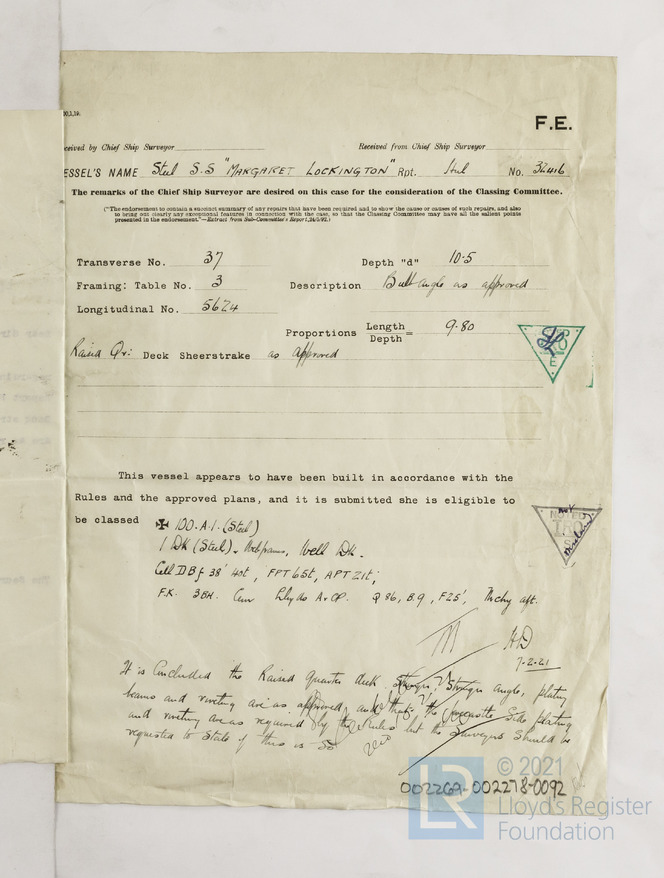 F.E.
eceived by Chief Ship Surveyor
Received from Chief Ship Surveyor
ESSEL'S NAME Steel S.S "MARGARET LOCKINGTON" Rpt. Hul No. 32416
The remarks of the Chief Ship Surveyor are desired on this case for the consideration of the Classing Committee.
("The endorsement to contain a succinct summary of any repairs that have been required and to show the cause or causes of such repairs, and also
to bring out clearly any exceptional features in connection with the case, so that the Classing Committee may have all the salient points
presented in the endorsement."—Extract from Sub-Committee's Report,
Transverse No. 37 Depth "d" 10.5
Framing: Table No. 3 Description Bulb angle as approved
Longitudinal No. 5624
Proportions Length
Depth = 9.80
Raised Qr: Deck Sheerstrake as approved
This vessel appears to have been built in accordance with the
Rules and the approved plans, and it is submitted she is eligible to
be classed ✠ 100.A.1. (Steel)
1 Dk (Steel). Web frames, Well Dk.
Cell D B f 38' 40t, FPT 65t, APT 21t;
F.K. 3BH. Cem Lloyds A&CP. Q 86, B.9, F25', Mchy aft.
HD
7-2-21
It is concluded the Raised quarter deck stringer, angle, plating
beams and riveting are as approved and that the forecastle side plating
and riveting are as required by the Rules but the Surveyors should be
requested to State if this is so
NOTED
002269-002278-0092
LR
© 2021
Lloyd's Register
Foundation